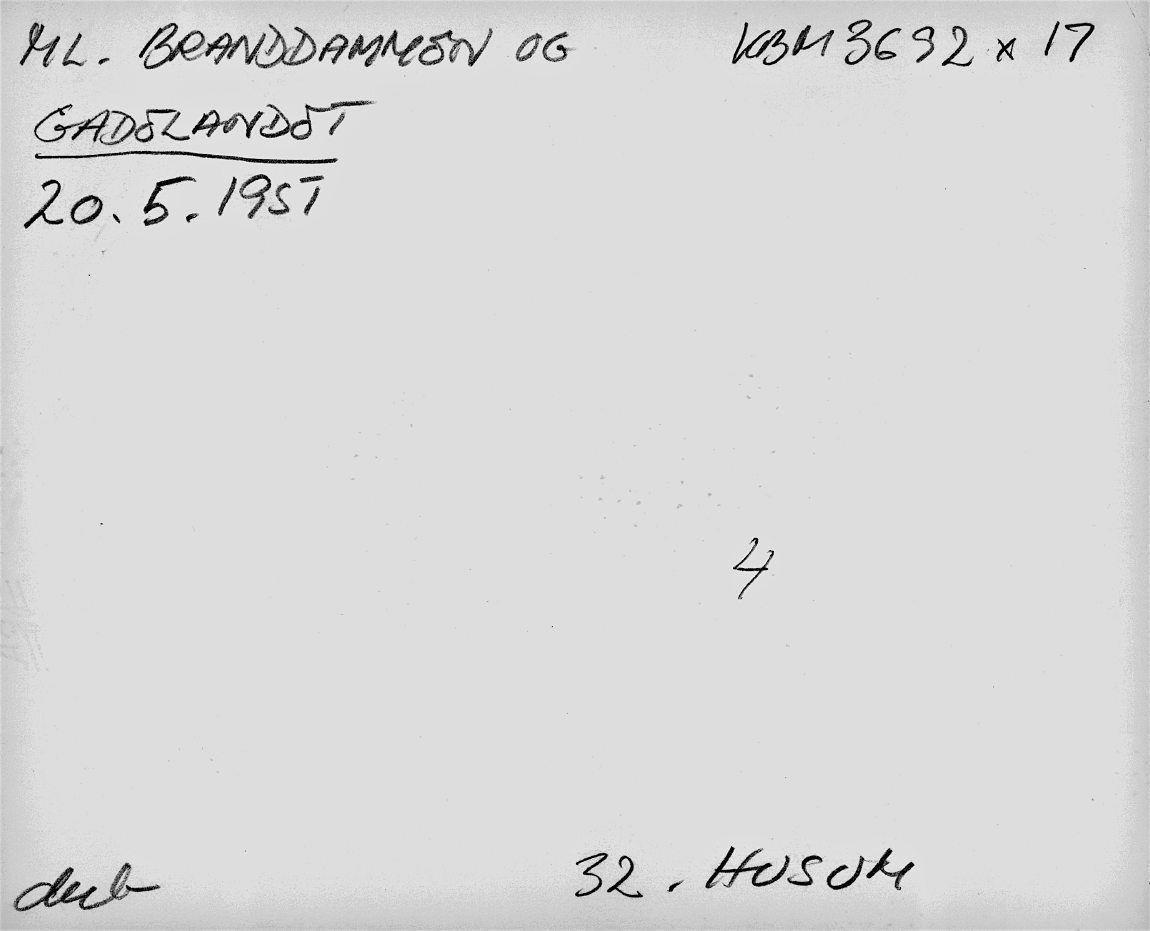 ML. BRANDDAMMEN OG KBM 3692 x 17
GADELANDET
20.5.1951
4
dub 32. HUSUM